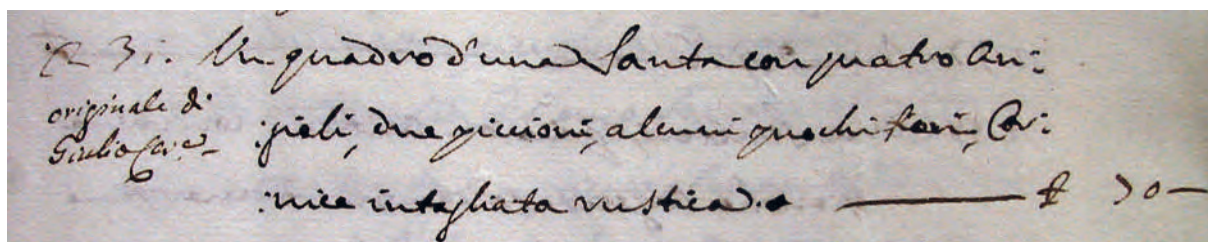 31. Un quadro d'una Santa con quatro An:
originale di
Giulio Ces.e
:gioli, due piccioni, alcuni puochi fiori, Cor:
:nice intagliata rustica. — £ 70 —